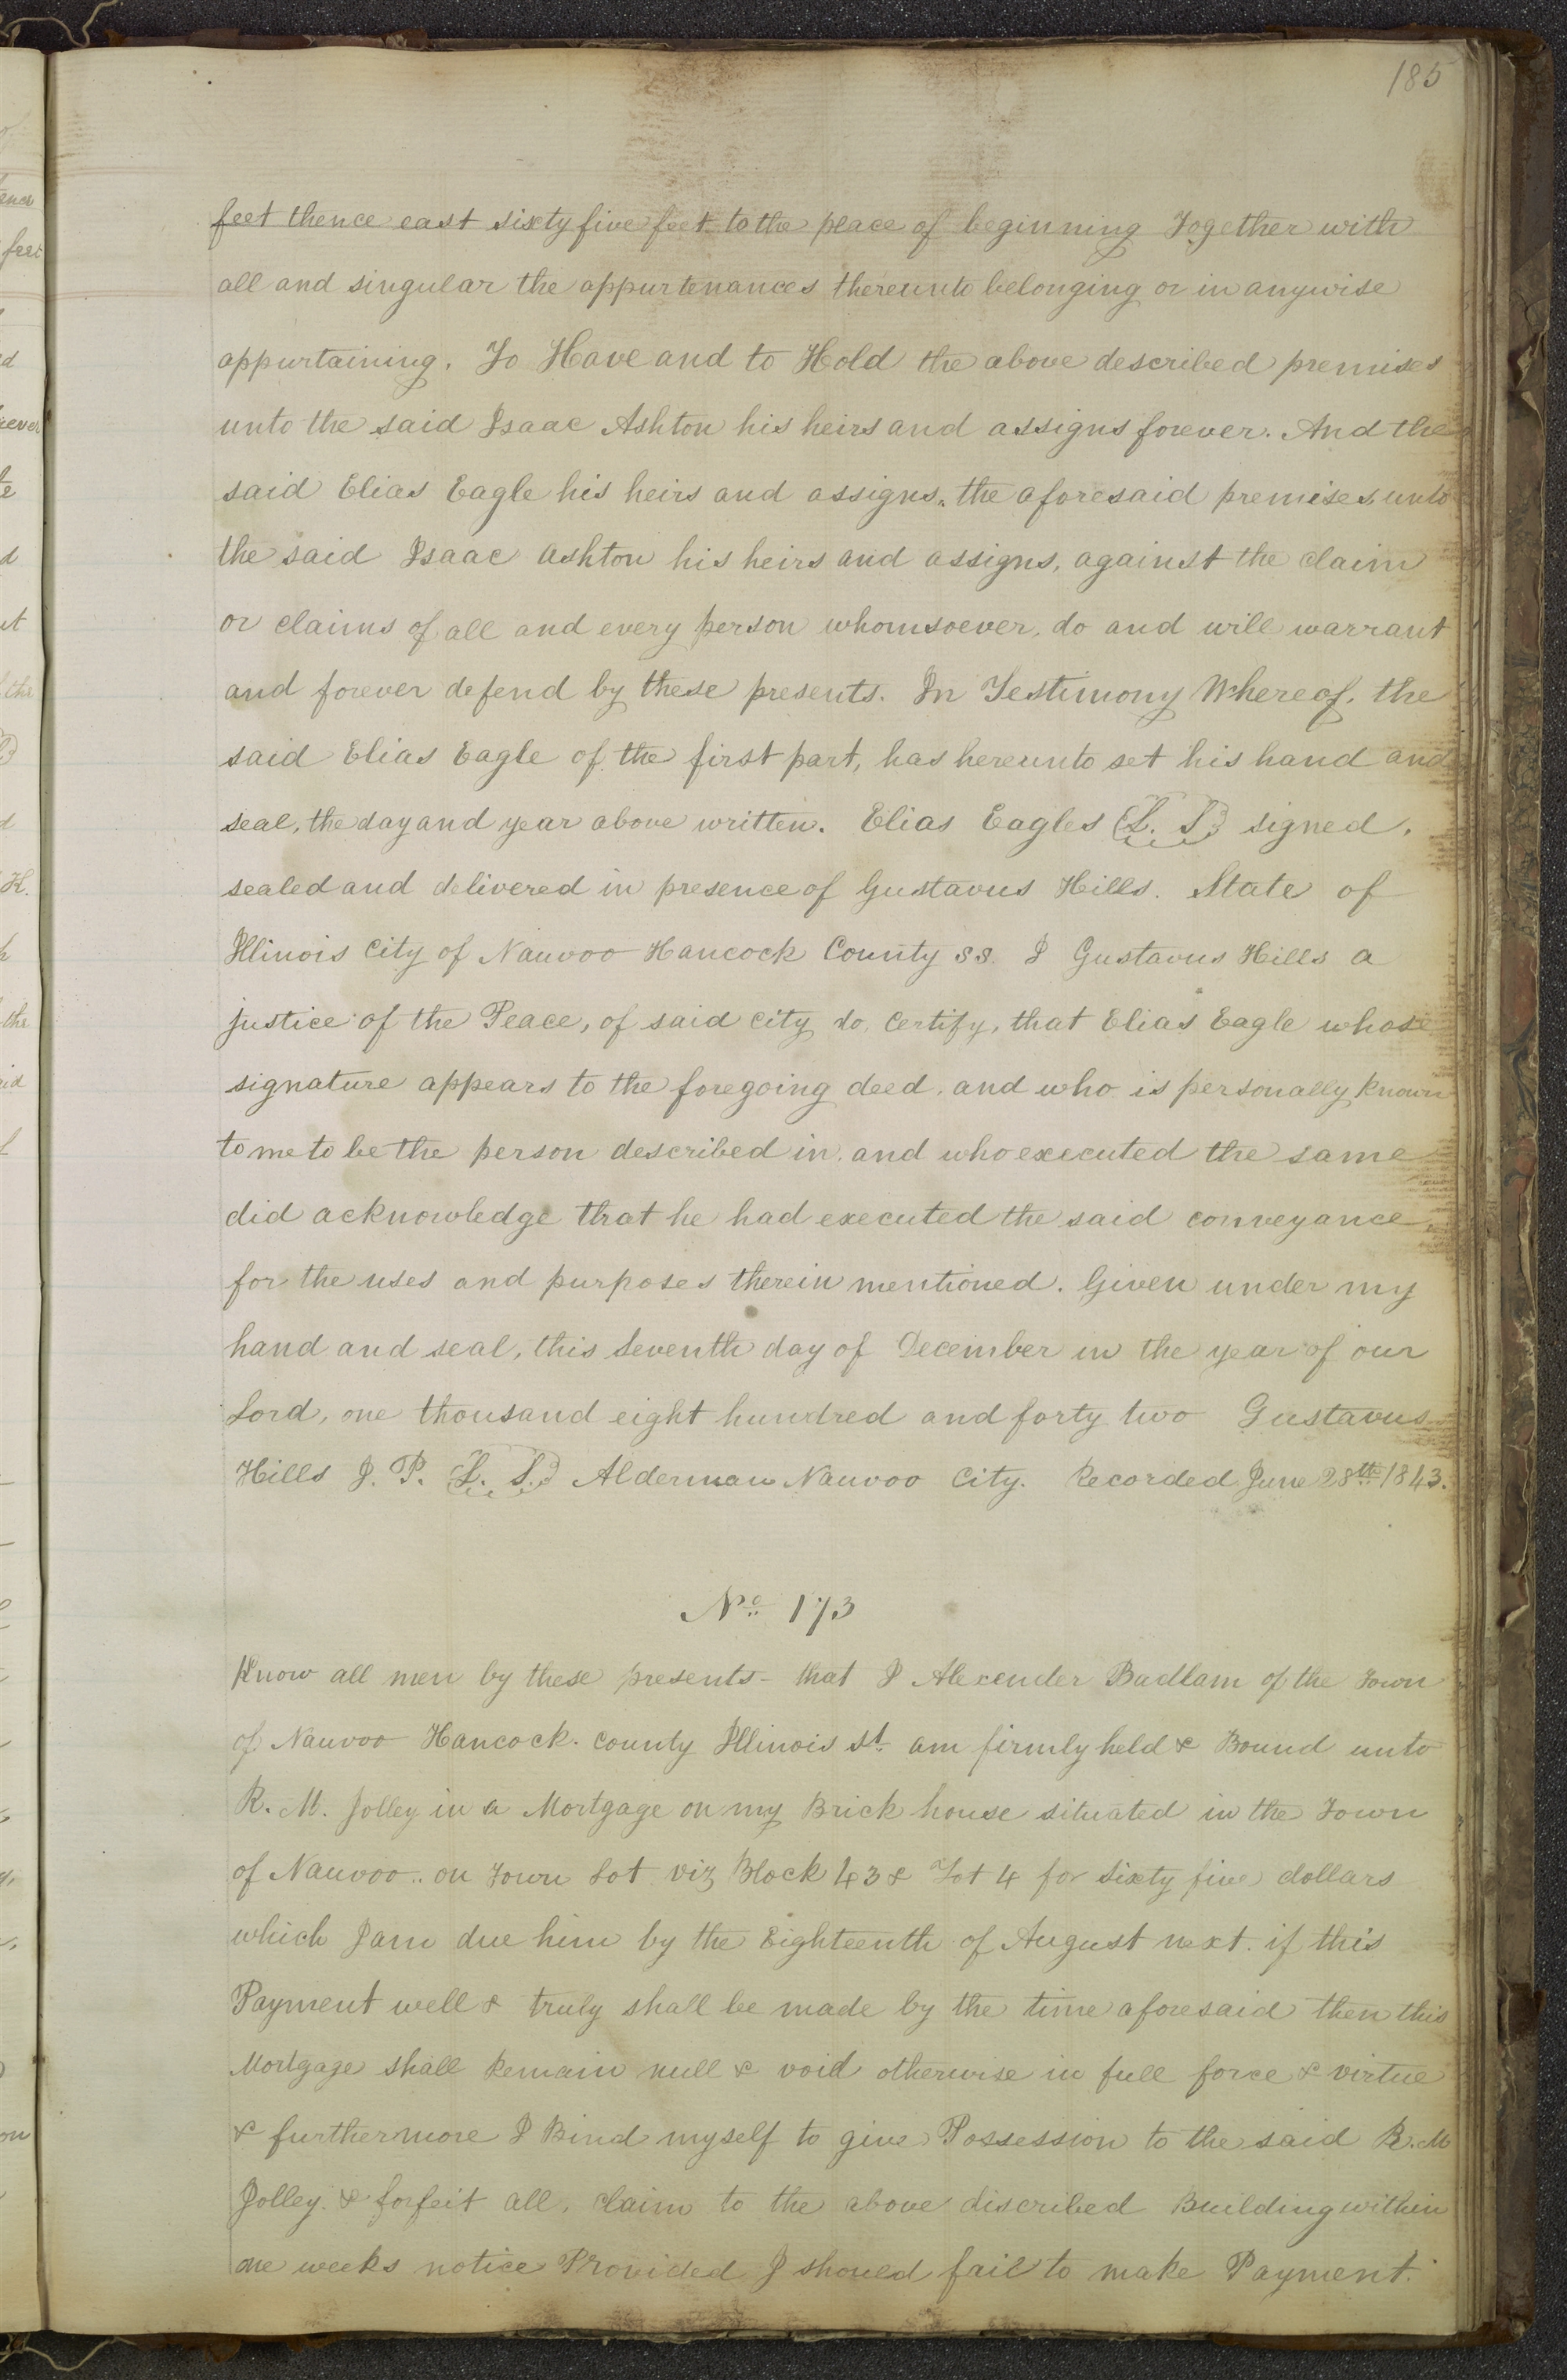 185
feet thence east sixty five feet to the place of beginning Together with
all and singular the appurtenances thereunto belonging or in anywise
appurtaining. To Have and to Hold the above described premises
unto the said Isaac Ashton his heirs and assigns forever. And the
said Elias Eagle his heirs and assigns, the aforesaid premises, unto
the said Isaac Ashton his heirs and assigns, against the claim
or claims of all and every person whomsoever, do and will warrant
and forever defend by these presents. In Testimony Whereof, the
said Elias Eagle of the first part, has hereunto set his hand and
seal, the day and year above written. Elias Eagles (L. S.) signed,
sealed and delivered in presence of Gustavus Hills. State of
Illinois City of Nauvoo Hancock County ss. I Gustavus Hills a
justice of the Peace, of said city do, certify, that Elias Eagle whose
signature appears to the foregoing deed, and who is personally known
to me to be the person described in, and who executed the same
did acknowledge that he had executed the said conveyance,
for the uses and purposes therein mentioned. Given under my
hand and seal, this Seventh day of December in the year of our
Lord, one thousand eight hundred and forty two Gustavus
Hills J. P. (L. S.) Alderman Nauvoo City. Recorded June 28th 1843.
No 173
Know all men by these presents - that I Alexender Badlam of the Town
of Nauvoo Hancock. county Illinois St. am firmly held & Bound unto
R. M. Jolley in a Mortgage on my Brick house situated in the Town
of Nauvoo.. on Town Lot viz Block 43 & Lot 4 for sixty five dollars
which I am due him by the Eighteenth of August next. if this
Payment well & truly shall be made by the time aforesaid then this
Mortgage shall Remain null & void otherwise in full force & virtue
& furthermore I Bind myself to give Possession to the said R. M
Jolley. & forfeit all, claim to the above discribed Building within
one weeks notice Provided I should fail to make Payment.